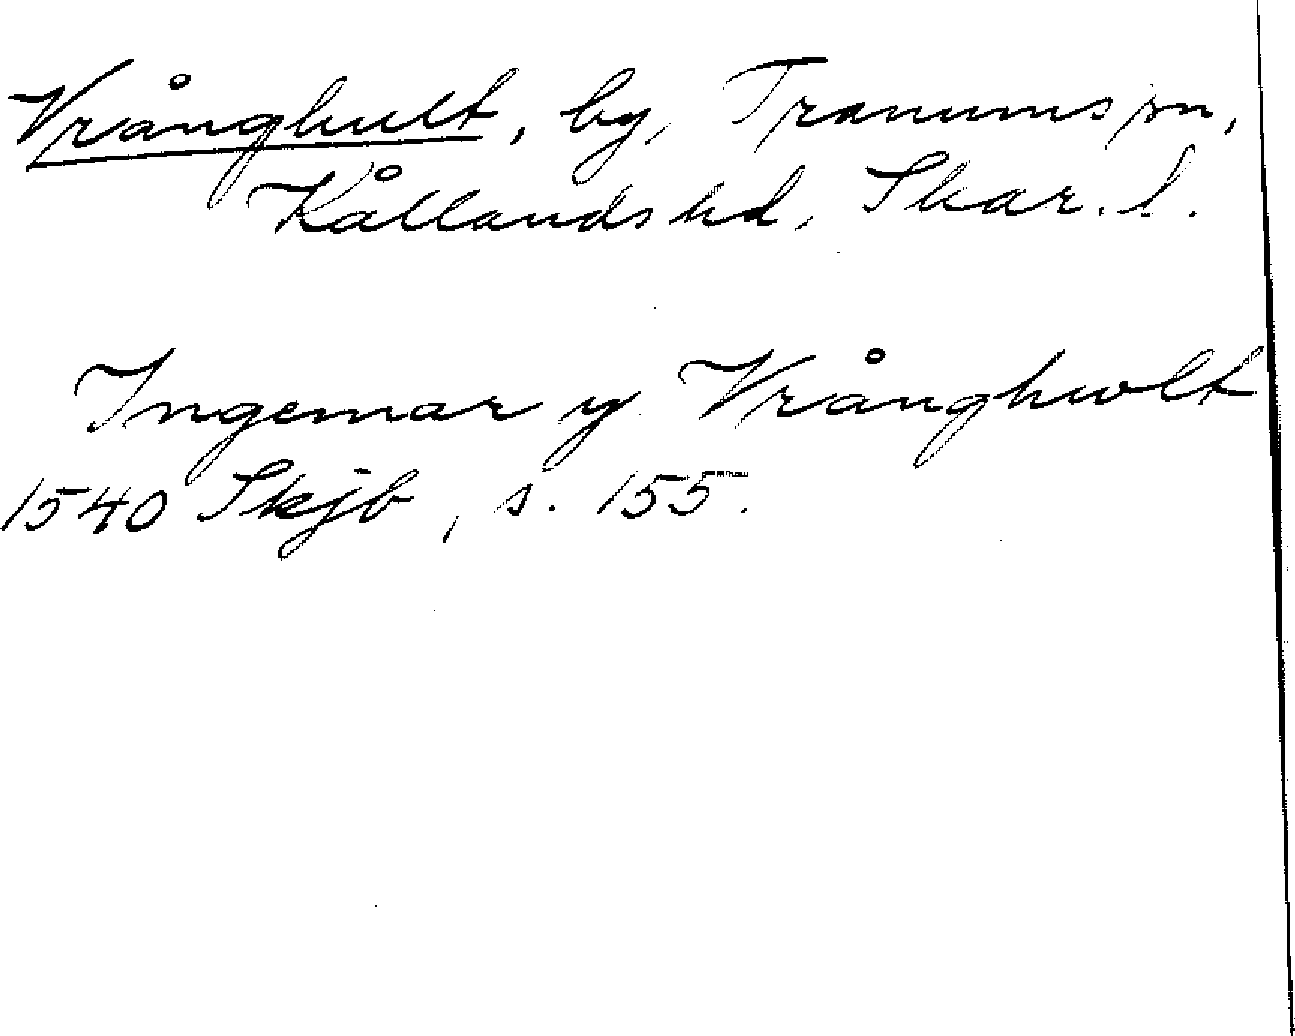 Vrånghult, by, Tranums sn,
Kållands hd, Skar. l.
Ingemar y Vrånghwlt
1540 Skjb, s. 155.